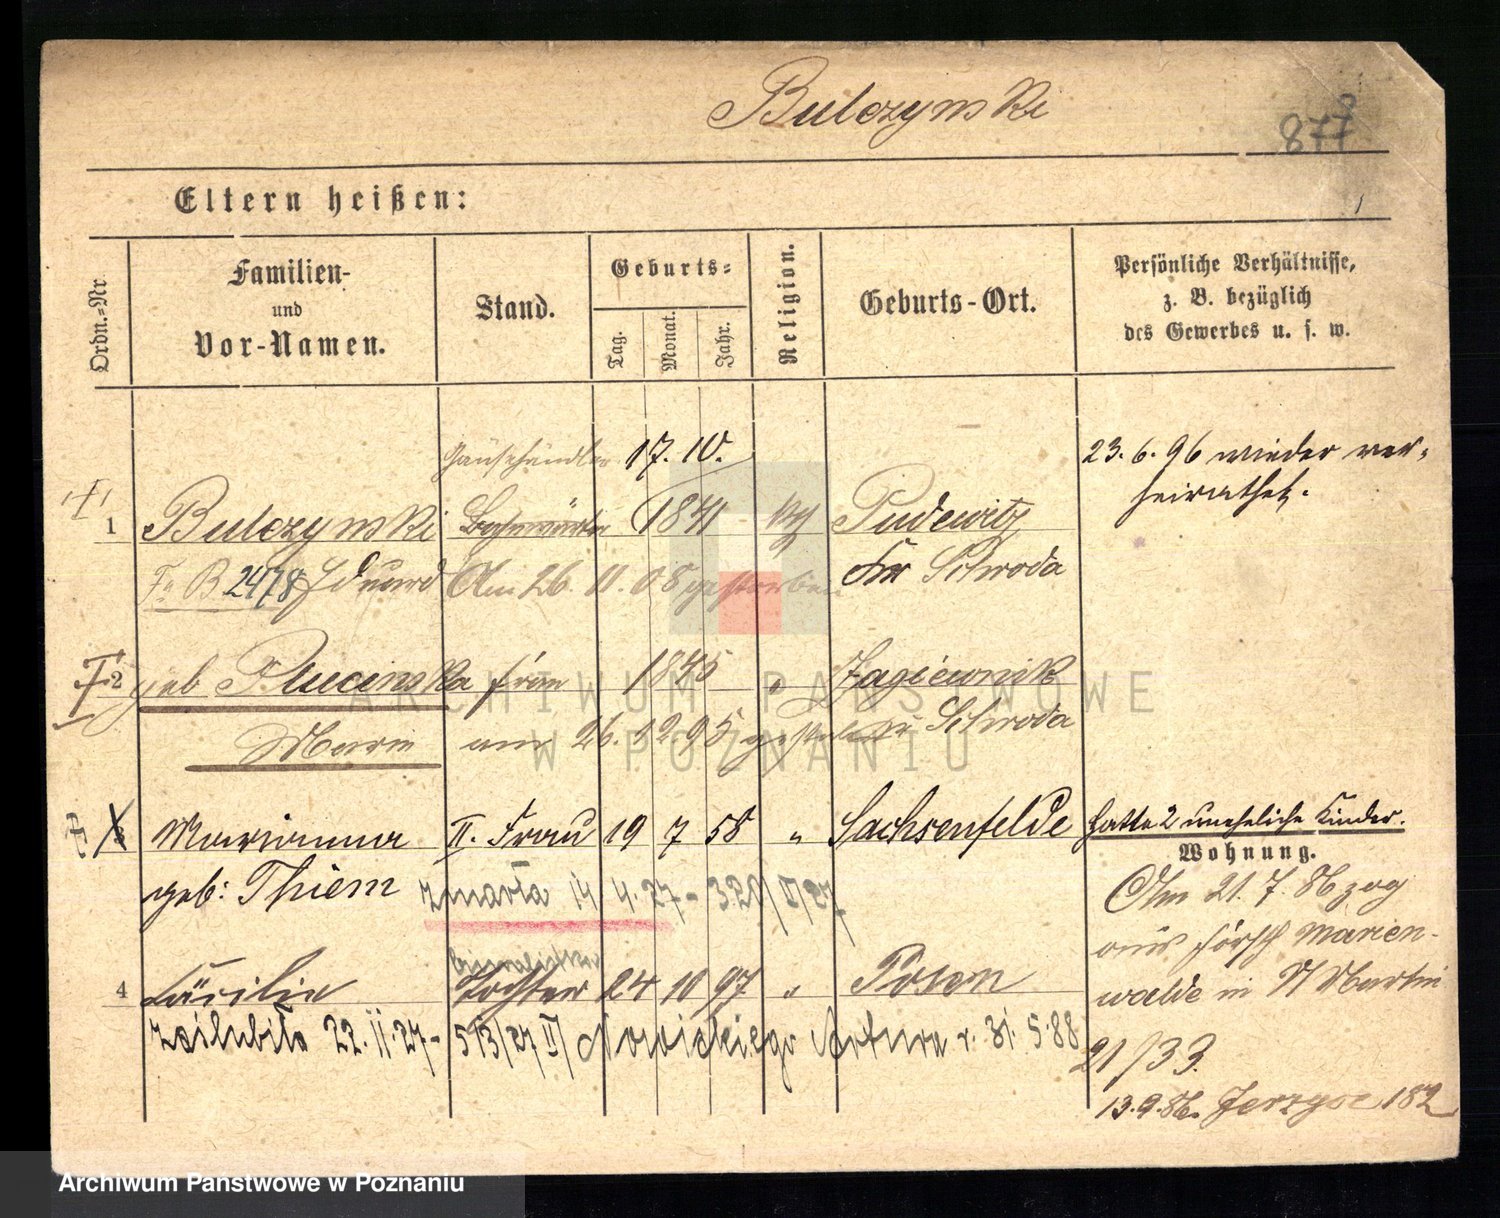 Bulczynski
877
Eltern heißen:
Ordn.-Nr.
Familien-
und
Vor-Namen.
Stand.
Geburts-
Tag.
Monat.
Jahr.
Religion.
Geburts-Ort.
Persönliche Verhältnisse,
z. B. bezüglich
des Gewerbes u. s. w.
Gänsehändler 17. 10.
23. 6. 96 wieder ver-
heirathet.
1 Bulczynski 1841 kth Pudewitz
Fr B 2478 Eduard Am 26. 11. 08 gestorben Kr Schroda
2 geb Plucinska Frau 1845 " Jagiewnik
Marie am 26. 12 95 gestorben Kr Schroda
Marianna II. Frau 19 7 58 " Sachsenfelde hatte 2 uneheliche Kinder.
geb: Thiem zmarła 14 4. 27 - 320/II/27
Wohnung.
Am 21. 7. 86 zog
aus Forsth Marien-
walde in St Martin
4 Cäcilie Tochter 24 10 97 " Posen
zaślubiła 22. II. 27 - 513/27 II/ Nowickiego Artura r. 31. 5. 88
21/33.
13. 9. 86. Jerzyce 182
ARCHIWUM PAŃSTWOWE
W POZNANIU
Archiwum Państwowe w Poznaniu